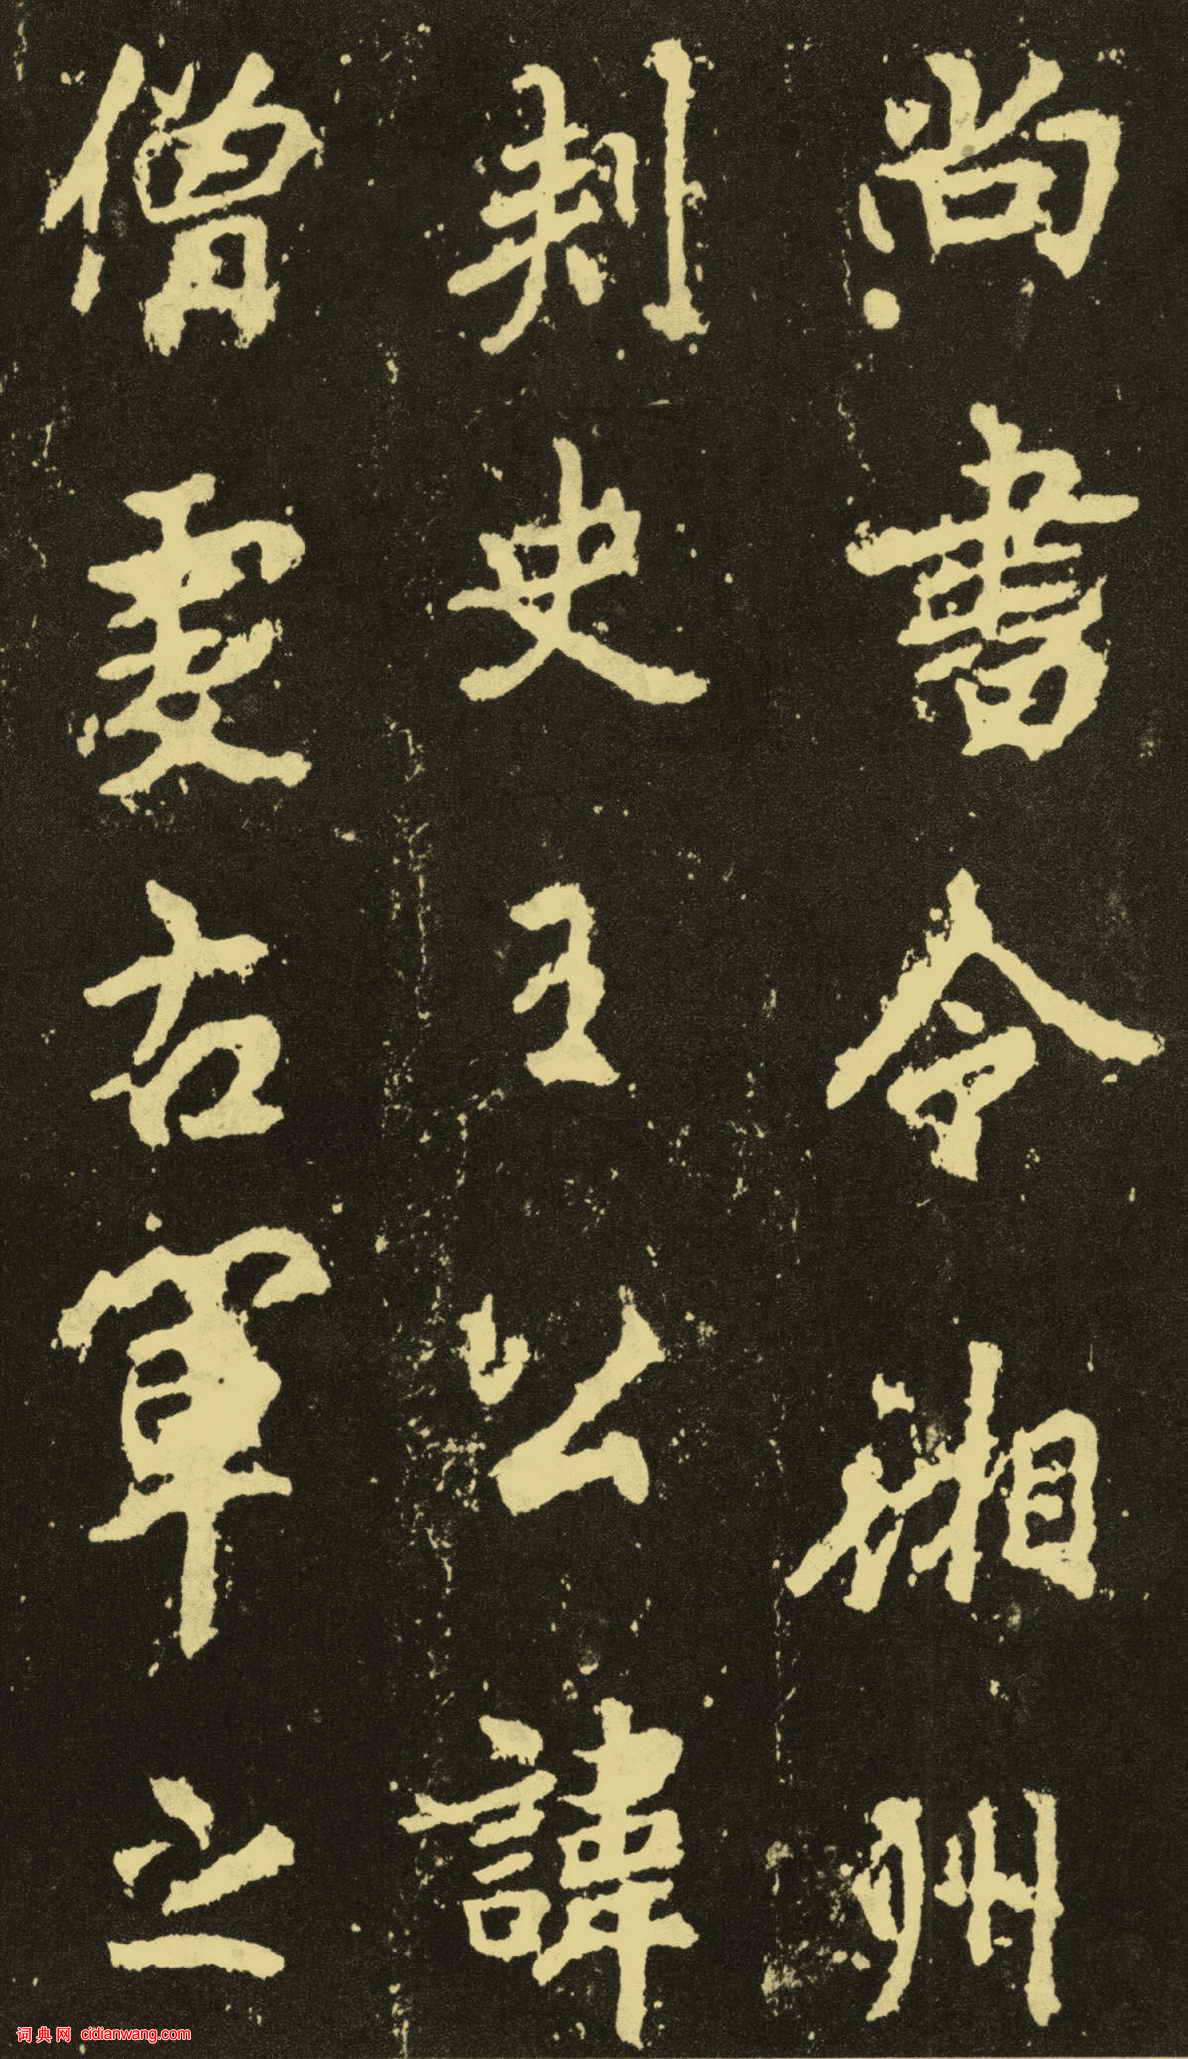 尚書令湘州
刺史王公諱
僧虔右軍之
词典网 cidianwang.com